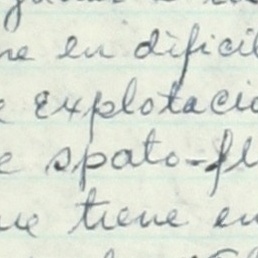 ne en dificil
e explotacio
e spato-fl
ue tiene en